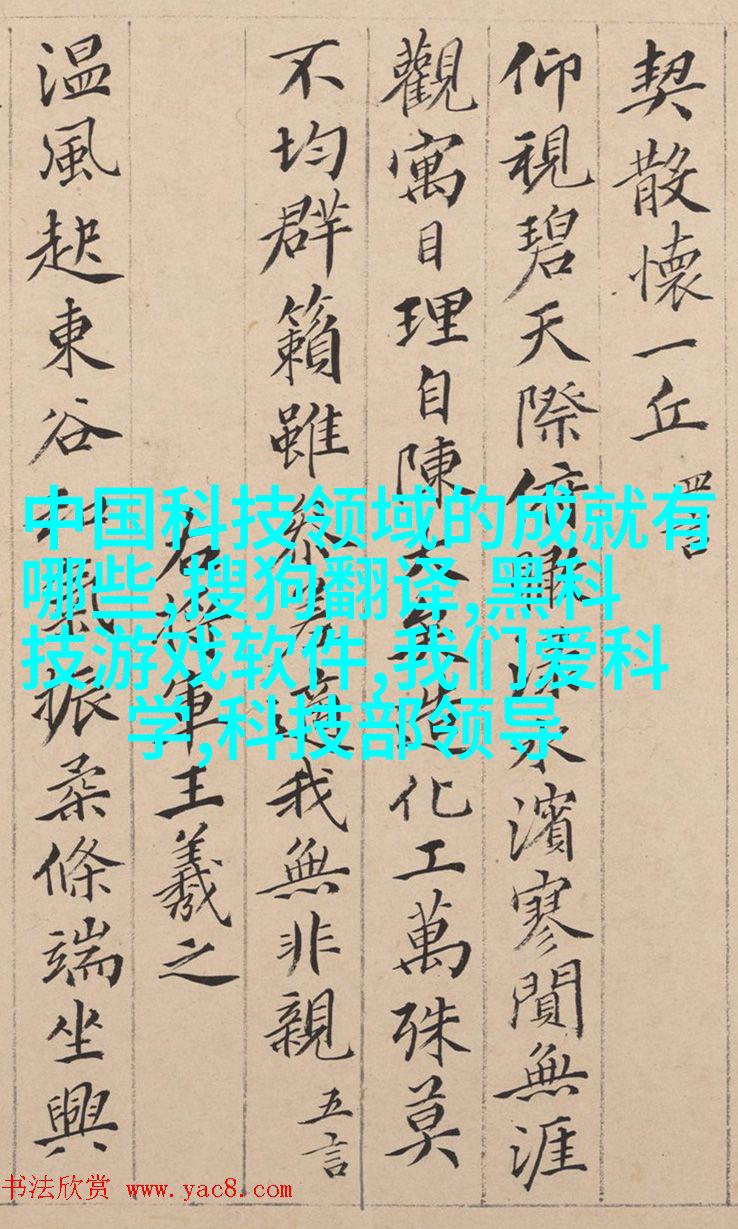 契散懷一丘 四言
仰視碧天際俯瞰渌水濱寥閴無涯
觀寓目理自陳大矣造化工萬殊莫
不均群籟雖參差適我無非親 五言
右將軍王羲之
温風起東谷和氣振柔條端坐興
中国科技领域的成就有
哪些,搜狗翻译,黑科
技游戏软件,我们爱科
学,科技部领导
书法欣赏 www.yac8.com